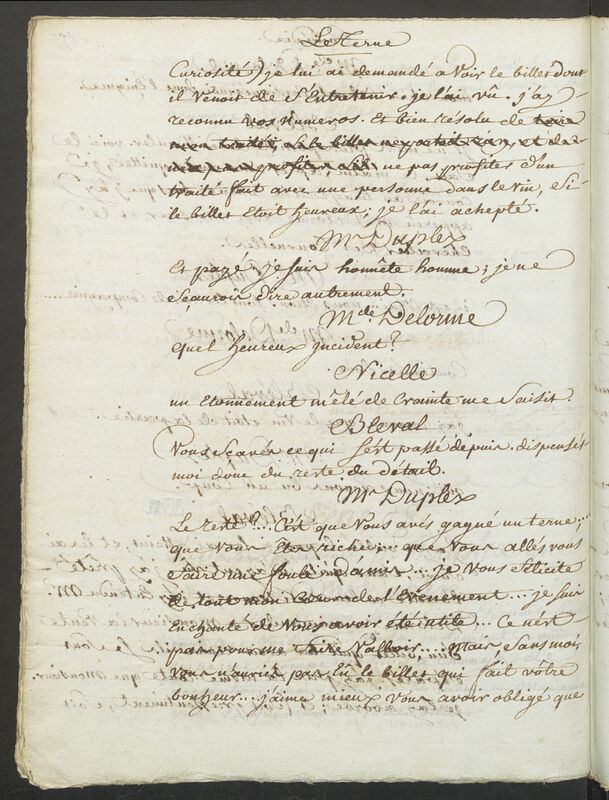 Le Terne
Curiosité) je lui ai demandé a voir le billet dont
il venoit de s'Entretenir. je l'ai vû. j'ay
reconnu vos numeros. Et bien résolu de faire
mon traité, si le billet ne portoit rien, et de
ne pas profiter, si le ne pas profiter d'un
traité fait avec une personne dans le vin, si
le billet Etoit heureux, je l'ai achepté.
Mr Duplex
Et payé. je suis honnête homme; je ne
sçaurois dire autrement.
Mde Delorme
quel heureux jncident?
Nicelle
un Etonnement mêlé de Crainte me Saisit.
Bleval
Vous Scavés ce qui s'est passé depuis. dispensés
moi donc du reste du détail.
Mr Duplex
Le reste?... C'est que vous avés gagné un terne...
que vous Etes riche; que vous allés vous
faire une foule d'amis... je vous félicite
de tout mon Coeur de l'Evenement... je suis
Enchanté de Vous avoir été utile... Ce n'est
pas pour me faire Valloir... Mais, sans moi,
vous n'auriés pas Eû le billet qui fait vôtre
bonheur... j'aime mieux vous avoir obligé que